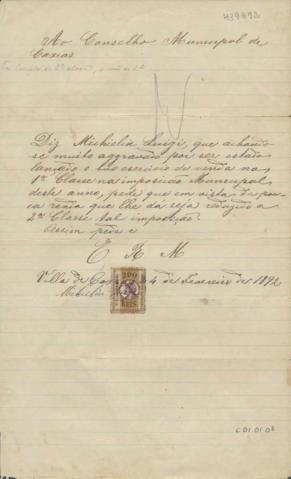 439893
Ao Conselho Municipal de
Caxias
Diz Michielin Luigi, que achando
se muito aggravado por ser estado
lançado o seu exercicio de venda na
1ª Classe na imposição Municipal
deste anno, pede que em vista de pou
ca renda que lhe dá seja reduzido a
2ª Classe tal imposição.
Assim pede e
E R M
Villa de Caxias 4 de Fevereiro de 1892
Michielin
200
REIS